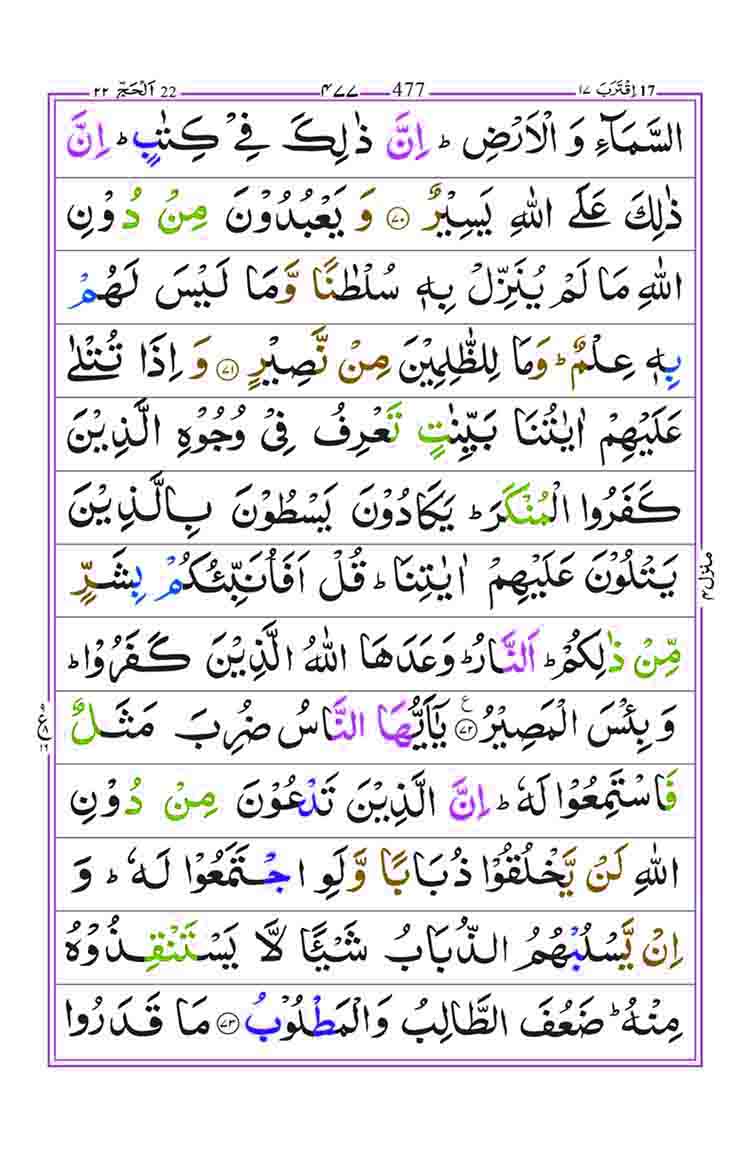 ٢٢ اَلْحَجّ 22 ۴۷۷ 477 17 اِقْتَرَبَ ١٧
السَّمَآءِ وَ الْاَرْضِ ؕ اِنَّ ذٰلِكَ فِیْ كِتٰبٍ ؕ اِنَّ
ذٰلِكَ عَلَی اللّٰهِ یَسِیْرٌ ﴿۷۰﴾ وَ یَعْبُدُوْنَ مِنْ دُوْنِ
اللّٰهِ مَا لَمْ یُنَزِّلْ بِهٖ سُلْطٰنًا وَّ مَا لَیْسَ لَهُمْ
بِهٖ عِلْمٌ ؕ وَ مَا لِلظّٰلِمِیْنَ مِنْ نَّصِیْرٍ ﴿۷۱﴾ وَ اِذَا تُتْلٰی
عَلَیْهِمْ اٰیٰتُنَا بَیِّنٰتٍ تَعْرِفُ فِیْ وُجُوْهِ الَّذِیْنَ
كَفَرُوا الْمُنْكَرَ ؕ یَكَادُوْنَ یَسْطُوْنَ بِالَّذِیْنَ
یَتْلُوْنَ عَلَیْهِمْ اٰیٰتِنَا ؕ قُلْ اَفَاُنَبِّئُكُمْ بِشَرٍّ
مِّنْ ذٰلِكُمْ ؕ اَلنَّارُ ؕ وَعَدَهَا اللّٰهُ الَّذِیْنَ كَفَرُوْا ؕ
وَ بِئْسَ الْمَصِیْرُ ﴿۷۲﴾ ع یٰۤاَیُّهَا النَّاسُ ضُرِبَ مَثَلٌ
فَاسْتَمِعُوْا لَهٗ ؕ اِنَّ الَّذِیْنَ تَدْعُوْنَ مِنْ دُوْنِ
اللّٰهِ لَنْ یَّخْلُقُوْا ذُبَابًا وَّ لَوِ اجْتَمَعُوْا لَهٗ ؕ وَ
اِنْ یَّسْلُبْهُمُ الذُّبَابُ شَیْـًٔا لَّا یَسْتَنْقِذُوْهُ
مِنْهُ ؕ ضَعُفَ الطَّالِبُ وَ الْمَطْلُوْبُ ﴿۷۳﴾ مَا قَدَرُوا
منزل ۴